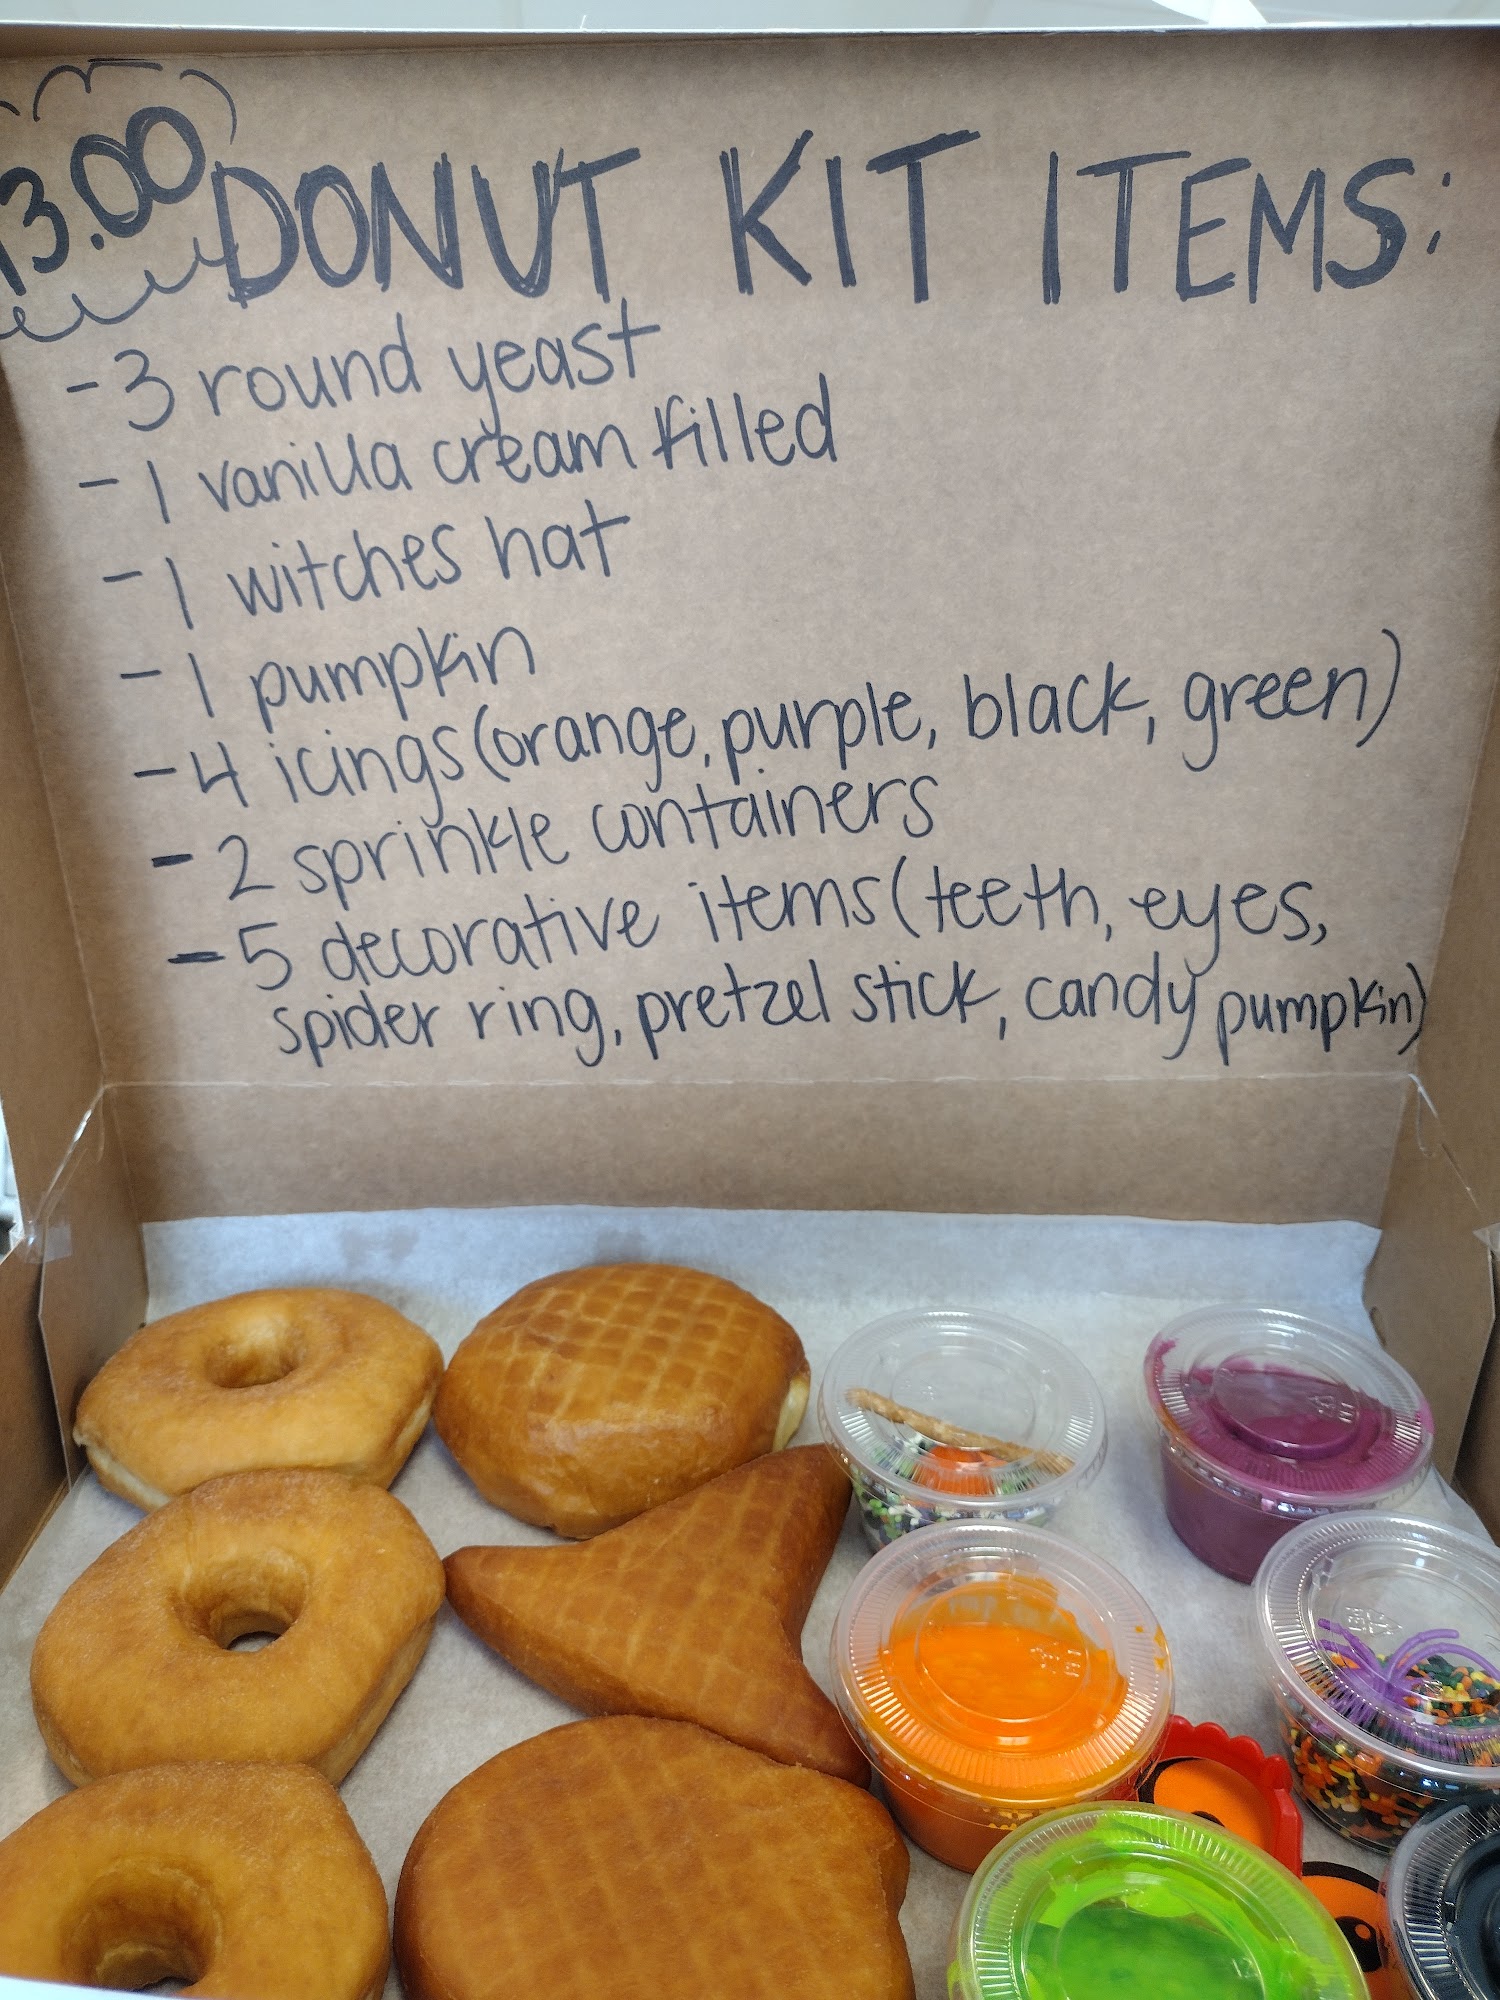 13.00
DONUT KIT ITEMS:
- 3 round yeast
- 1 vanilla cream filled
- 1 witches hat
- 1 pumpkin
- 4 icings (orange, purple, black, green)
- 2 sprinkle containers
- 5 decorative items (teeth, eyes,
spider ring, pretzel stick, candy pumpkin)